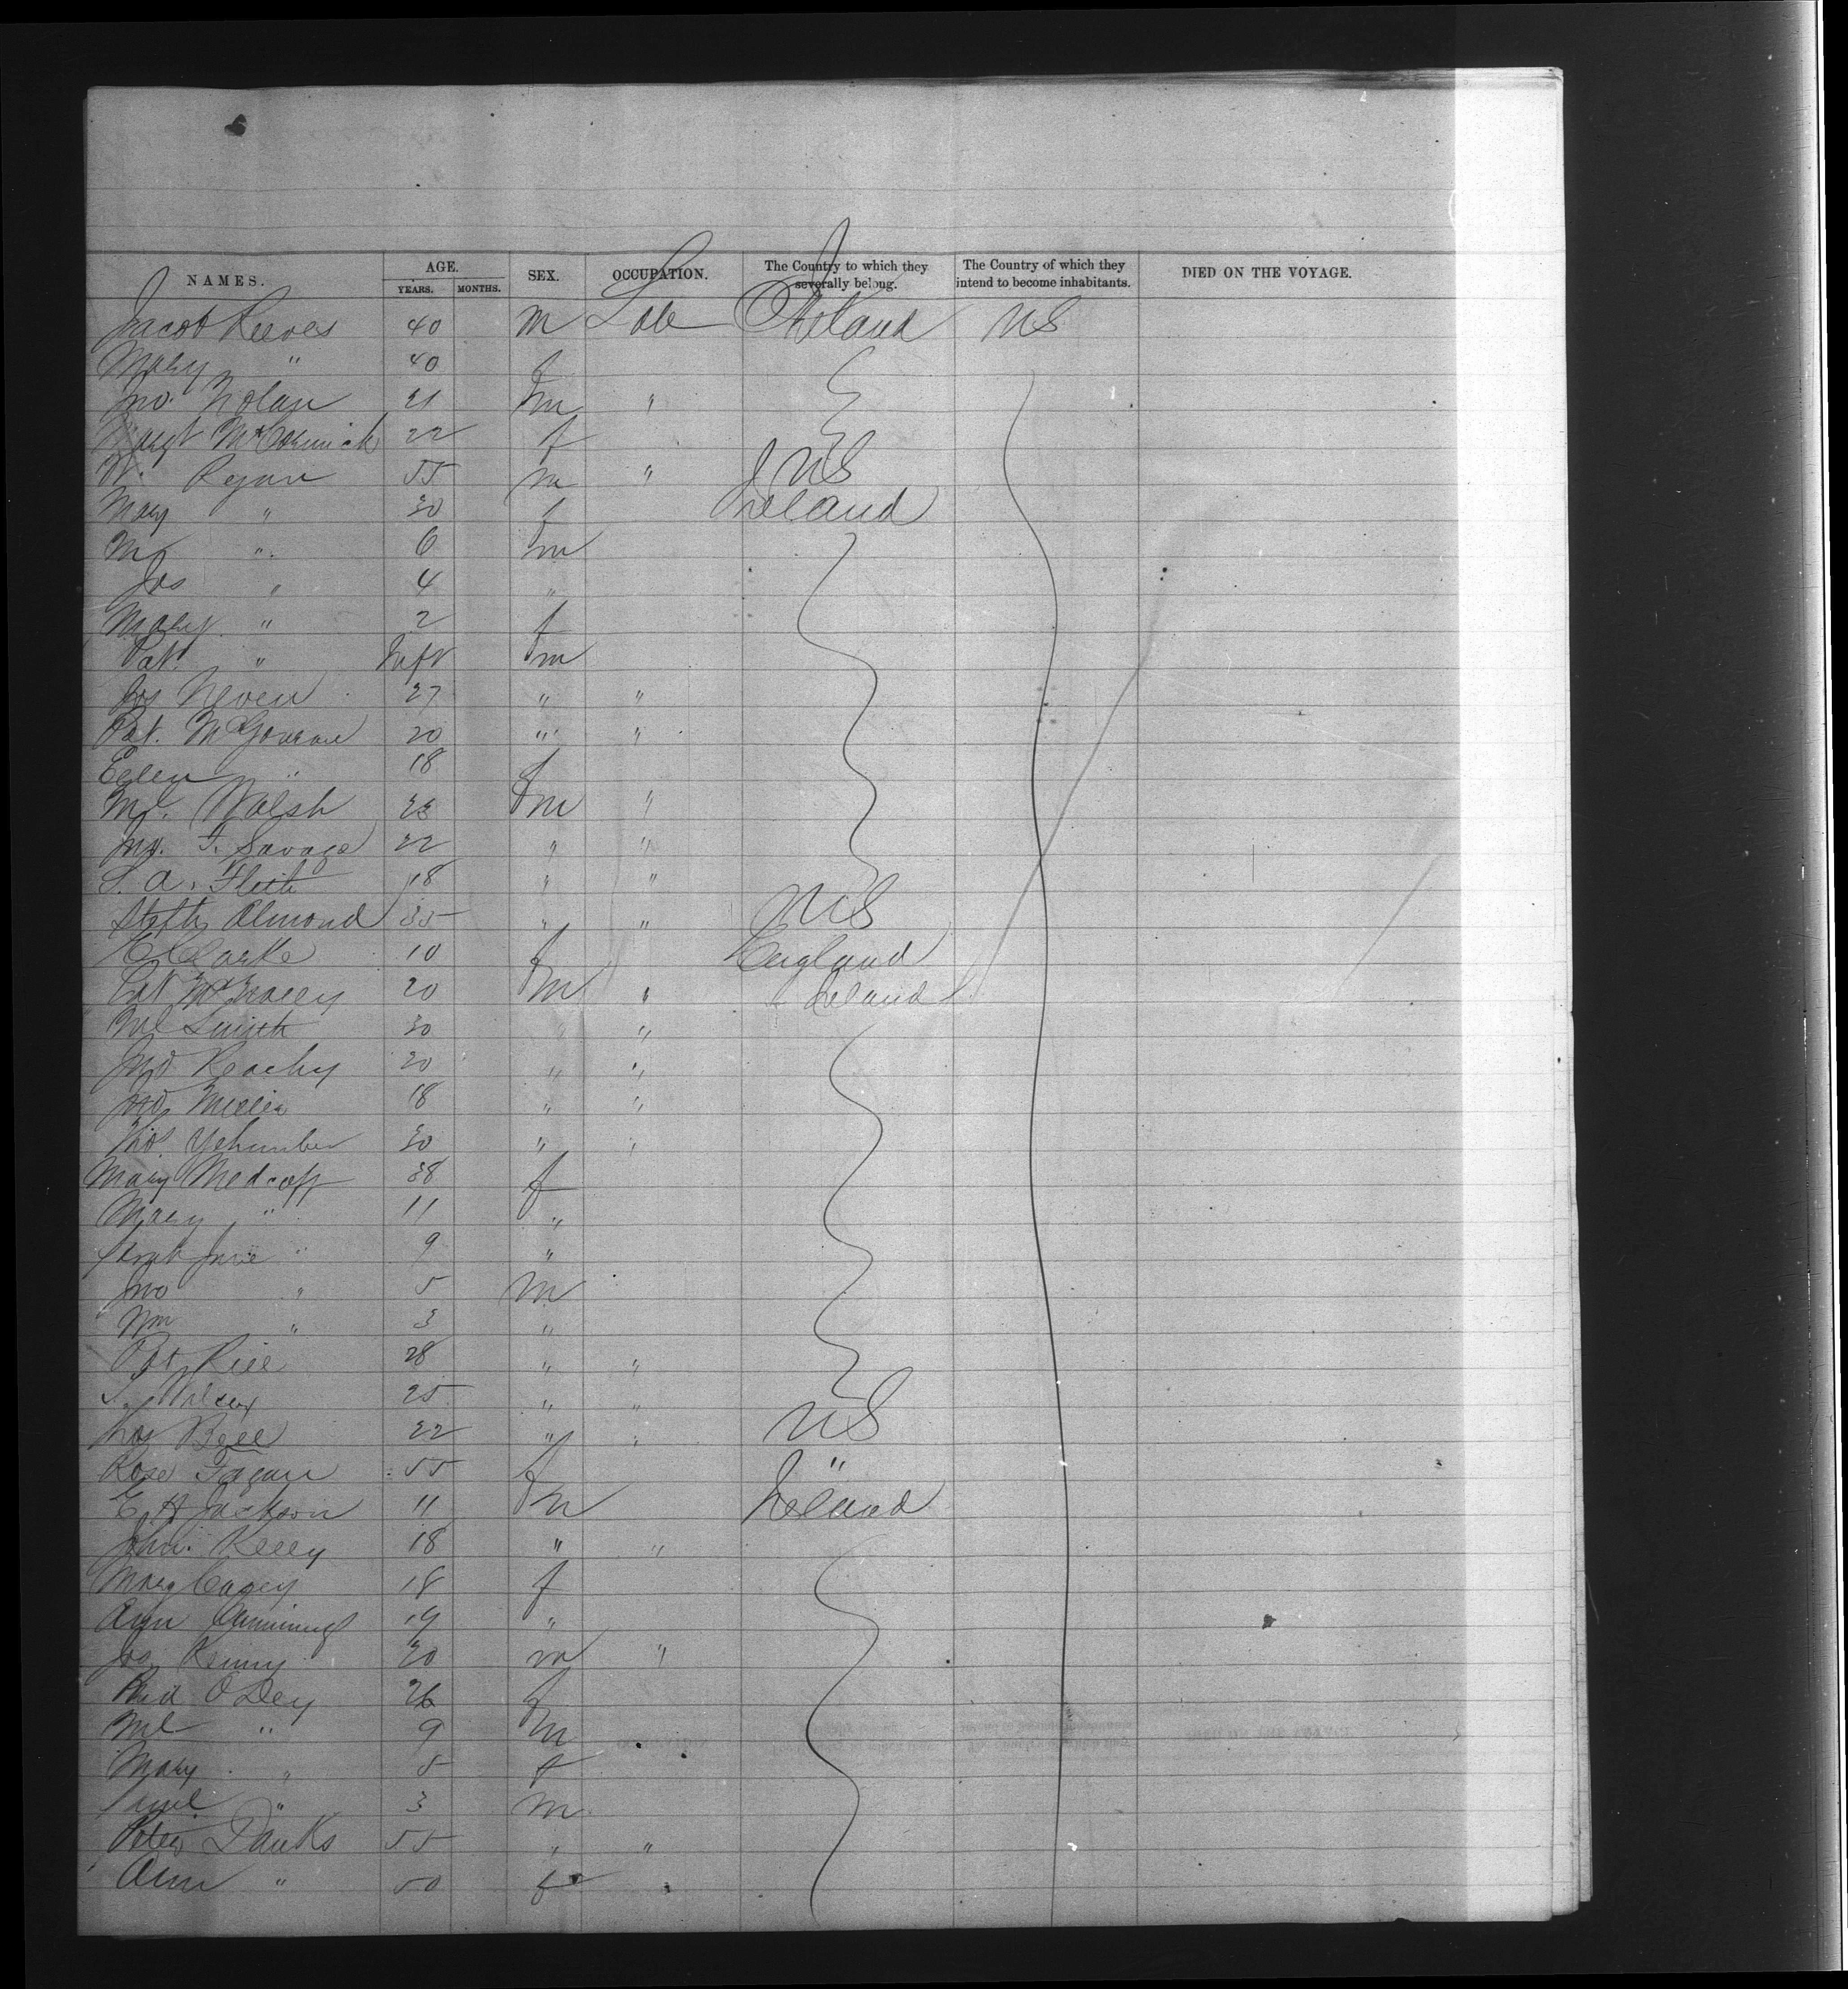 NAMES. AGE. YEARS. MONTHS. SEX. OCCUPATION. The Country to which they severally belong. The Country of which they intend to become inhabitants. DIED ON THE VOYAGE.
Jacob Reeves 40 m Lab Ireland US
Mary " 40 f
Jno. Nolan 21 m "
Margt McCormick 22 f
Ryan 55 m " US
Mary " 30 f Ireland
" 6 m
Jos " 4 "
Mary " 2 f
Pat " Inft m
Jas Neven 27 " "
Pat. McGovern 20 " "
Ellen " 18 f
Ml. Walsh 23 m "
Jno. F. Savage 22 " "
S. A. 18 " "
Almond 35 " " US
C Clarke 10 f England
Pat 20 m " Ireland
Ml Smith 30 " "
Jno 20 " "
Jno 18 " "
Thos 30 " "
Mary Medcalf 38 f
Mary " 11 "
Sarah Jane " 9 "
Jno " 5 m
Wm " 3 "
Pat Rice 28 " "
Wilcox 25 " "
Thos Bell 22 " " US
Rose Fagan 55 f "
E H Jackson 11 m Ireland
John Kelly 18 " "
Mary Casey 18 f
Ann Cummings 19 "
Jos. Kenny 20 m "
26 f
Ml " 9 m
Mary " 5 f
Saml " 3 m
Peter Danks 55 " "
Ann " 50 f